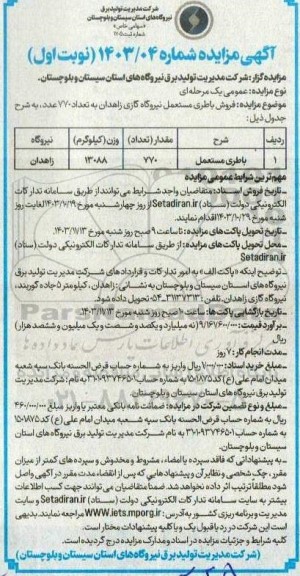 شرکت مدیریت تولید برق
نیروگاه‌های استان سیستان و بلوچستان
«سهامی خاص»
آگهی مزایده شماره ۱۴۰۳/۰۴ (نوبت اول)
مزایده‌گزار: شرکت مدیریت تولید برق نیروگاه‌های استان سیستان و بلوچستان.
نوع مزایده: عمومی یک مرحله‌ای
موضوع مزایده: فروش باطری مستعمل نیروگاه گازی زاهدان به تعداد ۷۷۰ عدد، به شرح
جدول ذیل:
ردیف شرح مقدار (تعداد) وزن (کیلوگرم) نیروگاه
۱ باطری مستعمل ۷۷۰ ۱۳۰۸۸ زاهدان
مهم‌ترین شرایط عمومی مزایده
ـ تاریخ فروش اسناد: متقاضیان واجد شرایط می‌توانند از طریق سامانه تدارکات
الکترونیکی دولت (ستاد) Setadiran.ir از روز چهارشنبه مورخ ۱۴۰۳/۱۰/۱۹ لغایت روز
شنبه مورخ ۱۴۰۳/۱۰/۲۹ اقدام نمایند.
ـ تاریخ تحویل پاکت‌های مزایده: تا ساعت ۹ صبح روز شنبه مورخ ۱۴۰۳/۱۱/۱۳.
ـ محل تحویل پاکت‌های مزایده: از طریق سامانه تدارکات الکترونیکی دولت (ستاد)
Setadiran.ir
ـ توضیح اینکه «پاکت الف» به امور تدارکات و قراردادهای شرکت مدیریت تولید برق
نیروگاه‌های استان سیستان و بلوچستان به نشانی: زاهدان، کیلومتر ۵ جاده کوربند،
نیروگاه گازی زاهدان، تلفن: ۳۱۳۷۳۱۳ـ۰۵۴ تحویل داده شود.
ـ تاریخ بازگشایی پاکت‌ها: ساعت ۱۰ صبح روز شنبه مورخ ۱۴۰۳/۱۱/۱۳.
ـ برآورد قیمت: ۹/۱۶۱/۶۰۰/۰۰۰ (نه میلیارد و یکصد و شصت و یک میلیون و ششصد هزار)
ریال
ـ مدت انجام کار: ۷ روز
ـ مبلغ خرید اسناد: ۱/۰۰۰/۰۰۰ ریال واریز به شماره حساب قرض الحسنه بانک سپه شعبه
میدان امام علی (ع) کد ۱۵۰۱۸۷۵ به نام شرکت مدیریت
تولید برق نیروگاه‌های استان سیستان و بلوچستان.
ـ مبلغ و نوع تضمین شرکت در مزایده: ضمانت نامه بانکی معتبر یا واریز مبلغ ۴۶۰/۰۰۰/۰۰۰
ریال به شماره حساب قرض الحسنه بانک سپه شعبه میدان امام علی (ع) کد ۱۵۰۱۸۷۵
به نام شرکت مدیریت تولید برق نیروگاه های استان
سیستان و بلوچستان.
ـ به پیشنهاداتی که فاقد سپرده یا امضاء، مشروط و مخدوش و سپرده‌های کمتر از میزان
مقرر، چک شخصی و نظایر آن و پیشنهادهایی که پس از انقضاء مدت مقرر در آگهی واصل
شود مطلقاً ترتیب اثر داده نخواهد شد. ضمناً متقاضیان می‌توانند جهت کسب اطلاعات
بیشتر به سایت سامانه تدارکات الکترونیکی دولت (ستاد) Setadiran.ir و سایت
مدیریت و برنامه‌ریزی کشور به آدرس: WWW.iets.mporg.ir مراجعه نمایند. بدیهی
است این شرکت در رد یا قبول یک و یا کلیه پیشنهادات مختار است.
کلیه شرایط و جزئیات مزایده در اسناد و مدارک مزایده درج گردیده است.
(شرکت مدیریت تولید برق نیروگاه‌های استان سیستان و بلوچستان)